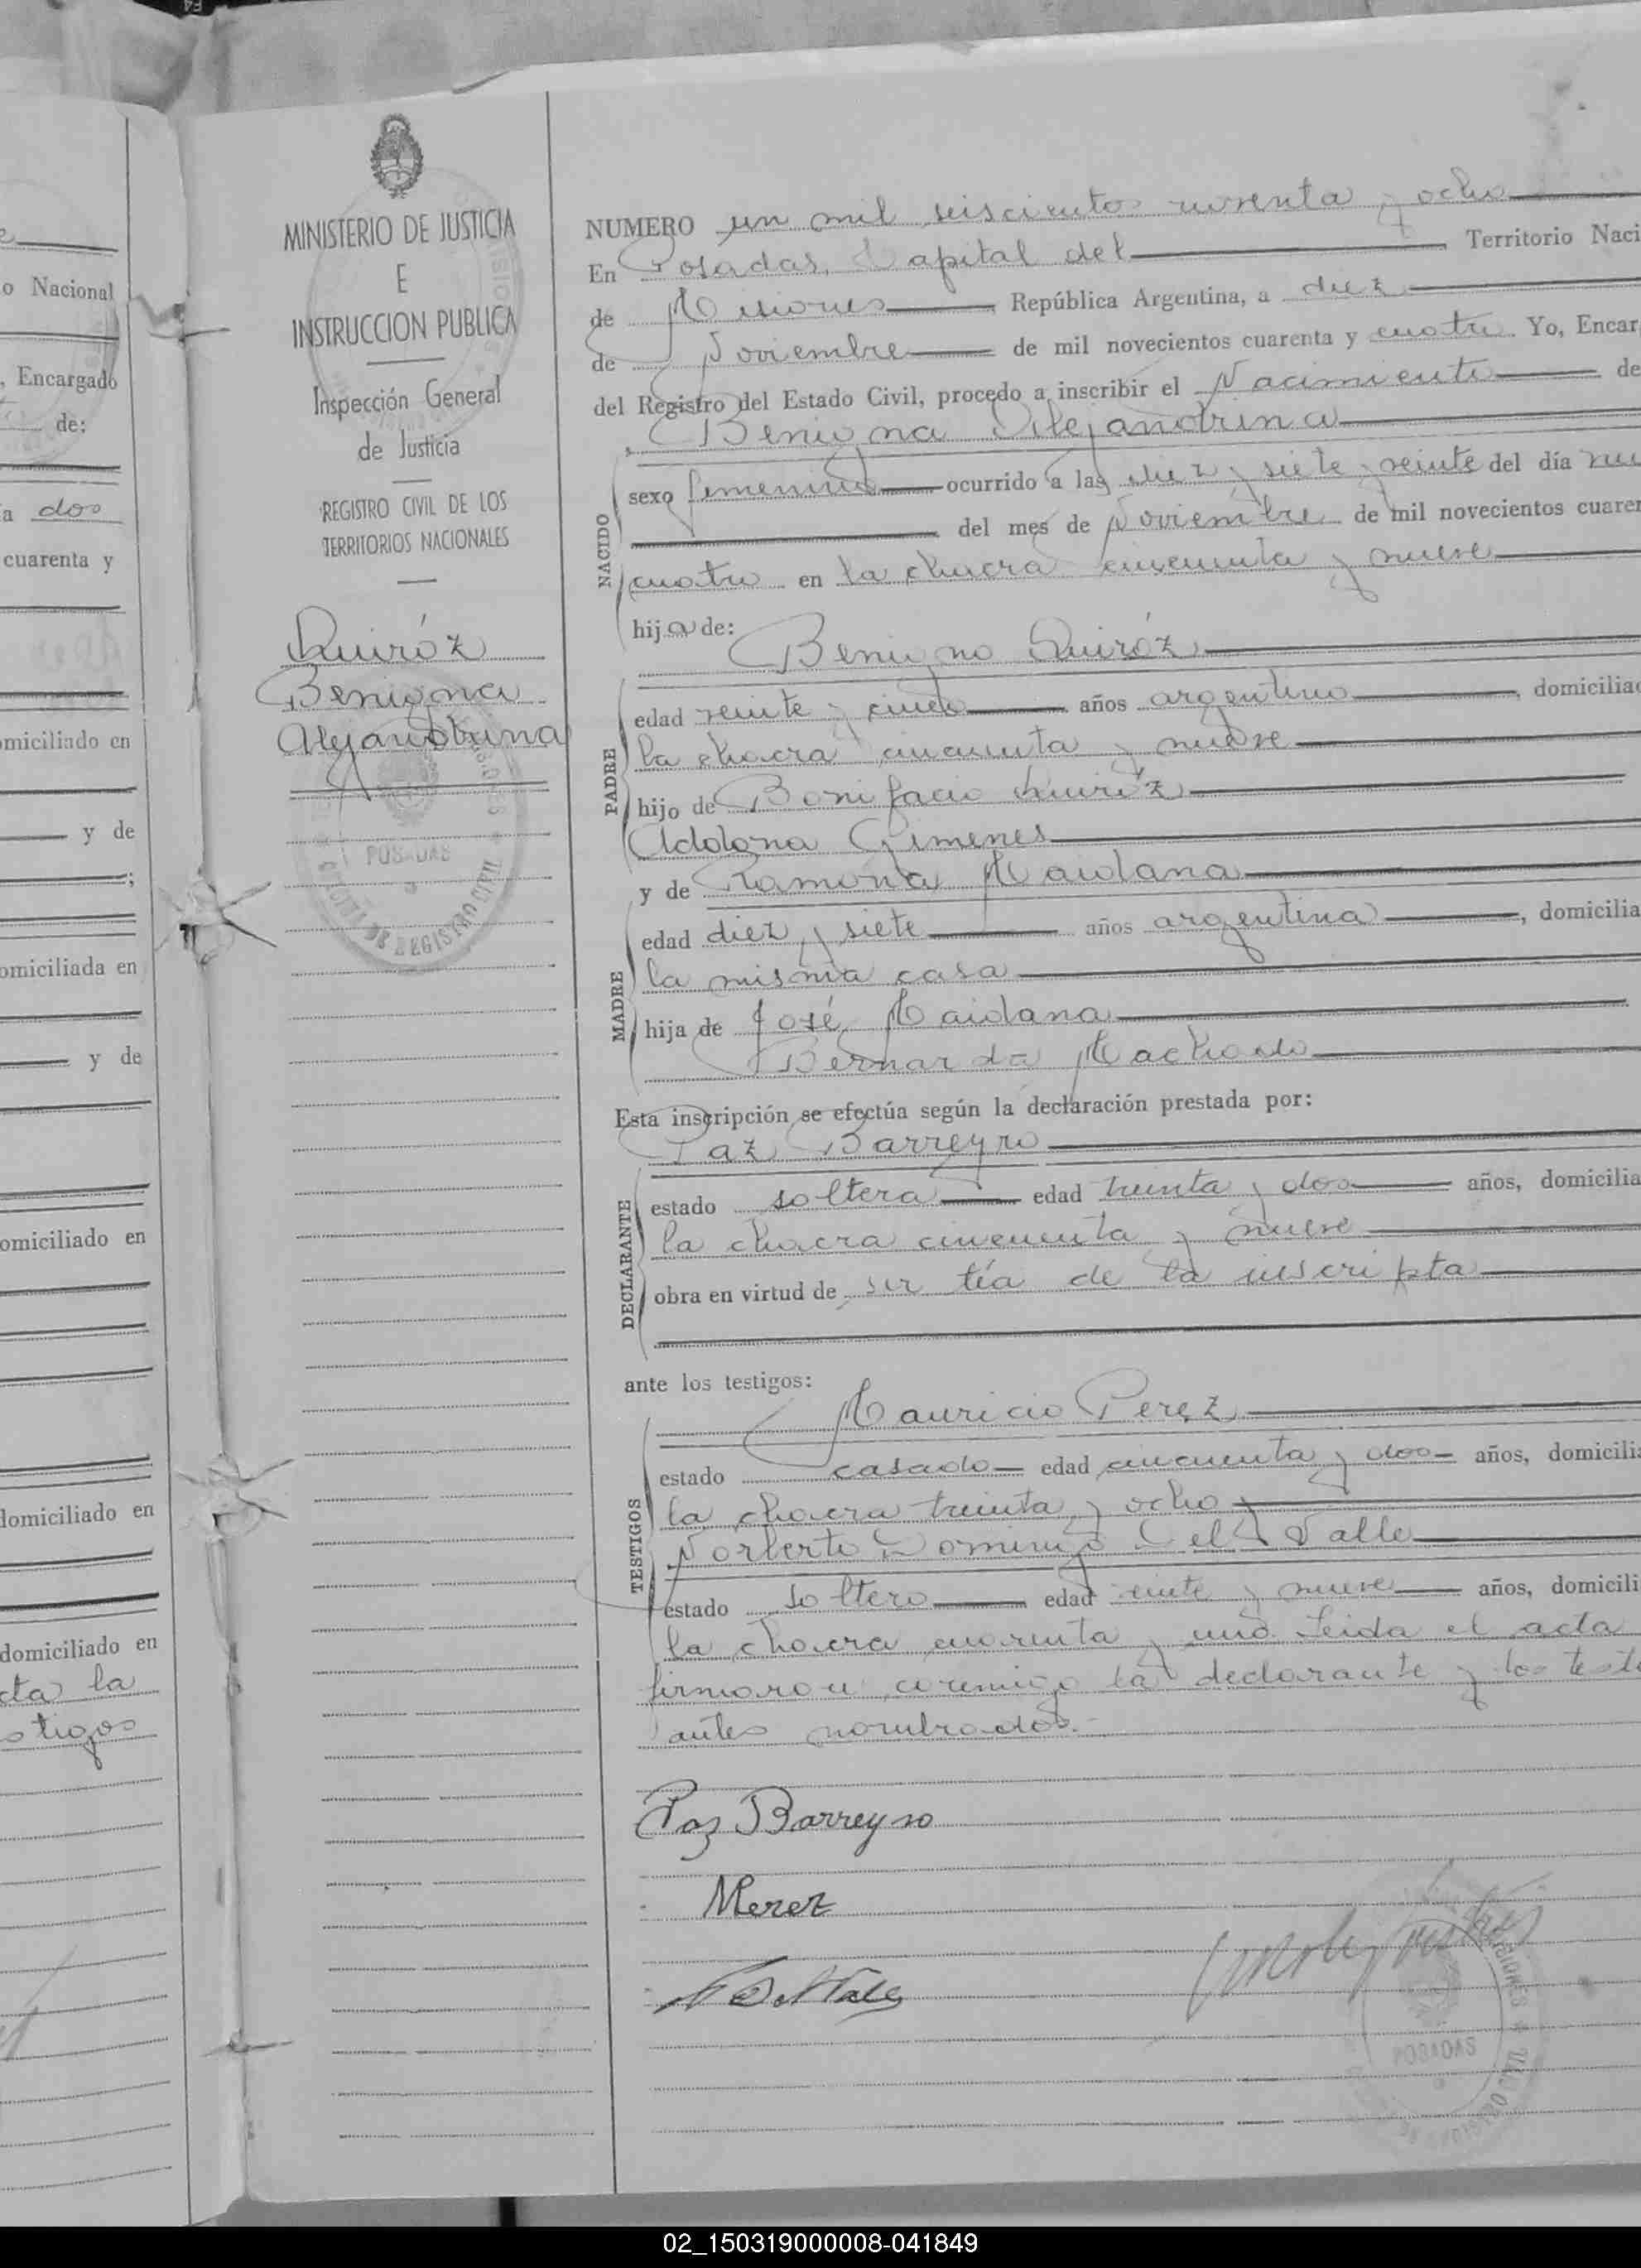 e
o Nacional
, Encargado
de:
a dos
cuarenta y
omiciliado en
y de
;
omiciliada en
y de
omiciliado en
domiciliado en
domiciliado en
cta la
stigos
MINISTERIO DE JUSTICIA
E
INSTRUCCION PUBLICA
Inspección General
de Justicia
REGISTRO CIVIL DE LOS
TERRITORIOS NACIONALES
Quiróz
Benigna
Alejandrina
POSADAS
NUMERO un mil seiscientos noventa y ocho
En Posadas, Capital del Territorio Naci
de Misiones República Argentina, a diez
de Noviembre de mil novecientos cuarenta y cuatro. Yo, Encar
del Registro del Estado Civil, procedo a inscribir el Nacimiento de
Benigna Alejandrina
NACIDO
sexo femenino ocurrido a las diez y siete y veinte del día nu
del mes de Noviembre de mil novecientos cuaren
cuatro en la chacra cincuenta y nueve
hija de:
Benigno Quiróz
PADRE
edad veinte y cinco años argentino, domiciliad
la chacra cincuenta y nueve
hijo de Bonifacio Quiróz
Adolona Gimenes
y de Ramona Maidana
MADRE
edad diez y siete años argentina, domicilia
la misma casa
hija de José Maidana
Bernarda Machado
Esta inscripción se efectúa según la declaración prestada por:
Paz Barreyro
DECLARANTE
estado soltera edad treinta y dos años, domicilia
la chacra cincuenta y nueve
obra en virtud de ser tía de la inscripta
ante los testigos:
Mauricio Perez
TESTIGOS
estado casado edad cincuenta y dos años, domicilia
la chacra treinta y ocho y
Norberto Domingo Del Valle
estado soltero edad veinte y nueve años, domicili
la chacra cuarenta y uno. Leida el acta
firmaron conmigo la declarante y los testi
antes nombrados.-
Paz Barreyro
MPerez
N D del Valle
POSADAS
02_150319000008-041849